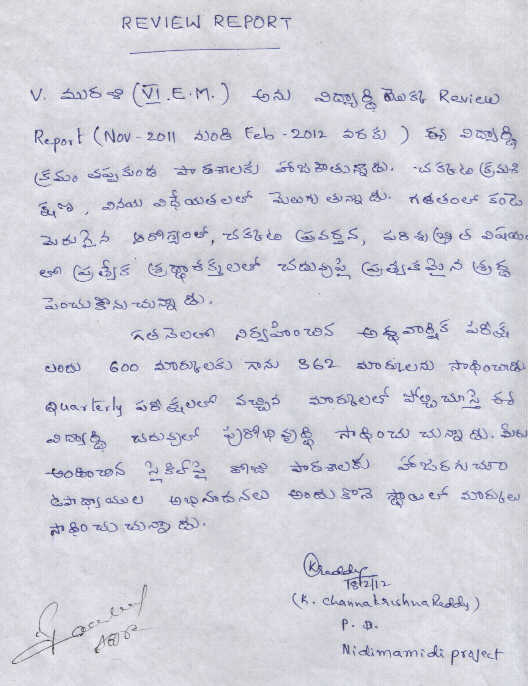 REVIEW REPORT
V. మురళి (VI.E.M.) అను విద్యార్థి యొక్క Review
Report (Nov-2011 నుండి Feb-2012 వరకు) ఈ విద్యార్థి
క్రమం తప్పకుండ పాఠశాలకు హాజరౌతున్నాడు. చక్కటి క్రమశి
క్షణ, వినయ విధేయతలలో మెలుగుతున్నాడు. గతంలో కంటె
మెరుగైన ఆరోగ్యంతో, చక్కటి ప్రవర్తన, పరిశుభ్రత విషయం
లో ప్రత్యేక శ్రద్ధాశక్తులలో చదువుపై ప్రత్యేకమైన శ్రద్ధ
పెంచుకొనుచున్నాడు.
గతనెలలో నిర్వహించిన అర్ధవార్షిక పరీక్ష
లందు 600 మార్కులకు గాను 362 మార్కులను సాధించాడు
Quarterly పరీక్షలలో వచ్చిన మార్కులలో పోల్చి చూస్తే ఈ
విద్యార్థి చదువులో పురోభివృద్ధి సాధించుచున్నాడు. మీరు
అందించిన సైకిల్‌పై రోజు పాఠశాలకు హాజరగుచూ
ఉపాధ్యాయుల అభినందనలు అందుకొనే స్థాయిలో మార్కులు
సాధించుచున్నాడు.
18/2/12
(K. Channakrishna Reddy)
P. D.
Nidimamidi project